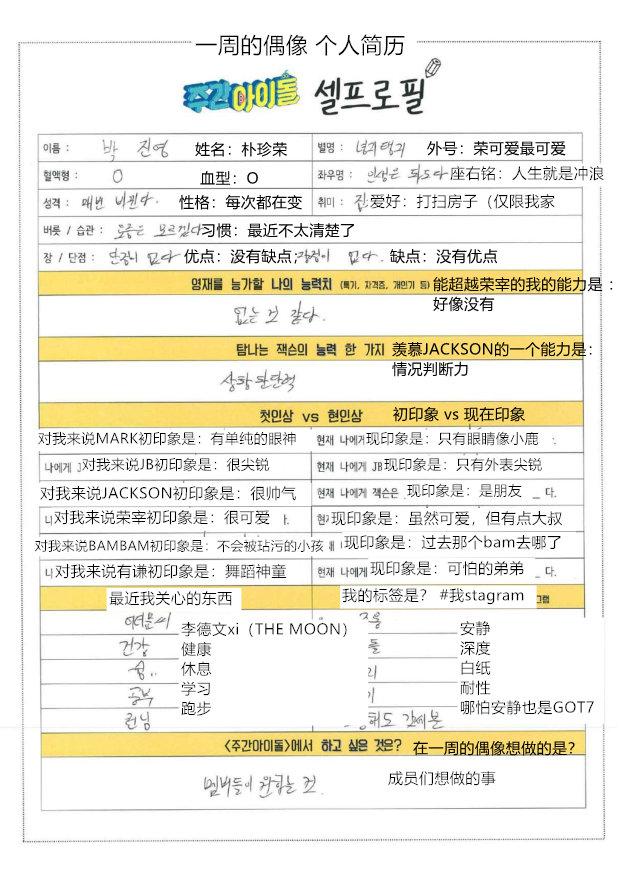 一周的偶像 个人简历
주간아이돌 셀프로필
이름 : 박 진영 姓名：朴珍荣 별명 : 外号：荣可爱最可爱
혈액형 : O 血型：O 좌우명 : 인생은 파도다 座右铭：人生就是冲浪
성격 : 매번 바뀐다. 性格：每次都在变 취미 : 집 爱好：打扫房子（仅限我家
버릇 / 습관 : 요즘은 모르겠다 习惯：最近不太清楚了
장 / 단점 : 단점이 없다 优点：没有缺点; 장점이 없다. 缺点：没有优点
영재를 능가할 나의 능력치 (특기, 자격증, 개인기 등) 能超越荣宰的我的能力是：
없는 것 같다. 好像没有
탐나는 잭슨의 능력 한 가지 羡慕JACKSON的一个能力是：
상황판단력 情况判断力
첫인상 vs 현인상 初印象 vs 现在印象
对我来说MARK初印象是：有单纯的眼神 현재 나에게 现印象是：只有眼睛像小鹿
나에게 J 对我来说JB初印象是：很尖锐 현재 나에게 JB 现印象是：只有外表尖锐
对我来说JACKSON初印象是：很帅气 현재 나에게 잭슨은 现印象是：是朋友 다.
对我来说荣宰初印象是：很可爱 现印象是：虽然可爱，但有点大叔
对我来说BAMBAM初印象是：不会被玷污的小孩 现印象是：过去那个bam去哪了
对我来说有谦初印象是：舞蹈神童 현재 나에게 现印象是：可怕的弟弟 다.
最近我关心的东西 我的标签是？ #我stagram 그램
이덕문씨 李德文xi（THE MOON） 安静
건강 健康 深度
쉼.. 休息 白纸
공부 学习 耐性
런닝 跑步 哪怕安静也是GOT7
<주간아이돌>에서 하고 싶은 것은? 在一周的偶像想做的是？
멤버들이 원하는 것. 成员们想做的事